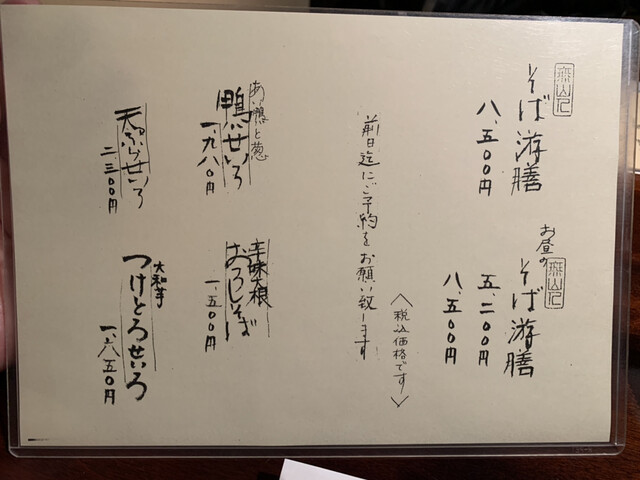 そば游膳
八、五〇〇円
お昼の
そば游膳
五、二〇〇円
八、五〇〇円
〈税込価格です〉
前日迄にご予約をお願い致します
あい鴨と葱
鴨せいろ
一、九八〇円
辛味大根
おろしそば
一、五〇〇円
天ぷらせいろ
二、三〇〇円
大和芋
つけとろせいろ
一、六五〇円